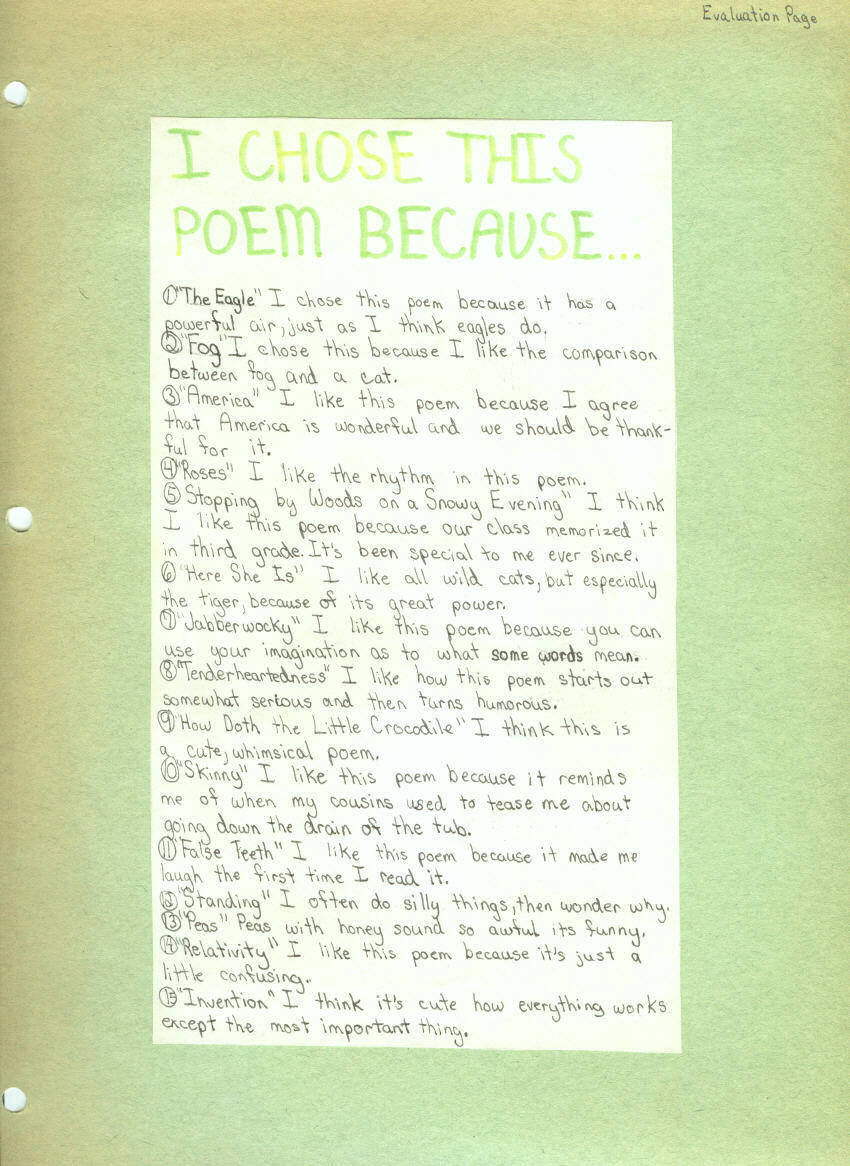 Evaluation Page
I CHOSE THIS
POEM BECAUSE...
① "The Eagle" I chose this poem because it has a
powerful air, just as I think eagles do.
② "Fog" I chose this because I like the comparison
between fog and a cat.
③ "America" I like this poem because I agree
that America is wonderful and we should be thank-
ful for it.
④ "Roses" I like the rhythm in this poem.
⑤ Stopping by Woods on a Snowy Evening" I think
I like this poem because our class memorized it
in third grade. It's been special to me ever since.
⑥ "Here She Is" I like all wild cats, but especially
the tiger, because of its great power.
⑦ "Jabberwocky" I like this poem because you can
use your imagination as to what some words mean.
⑧ "Tenderheartedness" I like how this poem starts out
somewhat serious and then turns humorous.
⑨ "How Doth the Little Crocodile" I think this is
a cute, whimsical poem.
⑩ "Skinny" I like this poem because it reminds
me of when my cousins used to tease me about
going down the drain of the tub.
⑪ "False Teeth" I like this poem because it made me
laugh the first time I read it.
⑫ "Standing" I often do silly things, then wonder why.
⑬ "Peas" Peas with honey sound so awful its funny.
⑭ "Relativity" I like this poem because it's just a
little confusing.
⑮ "Invention" I think it's cute how everything works
except the most important thing.